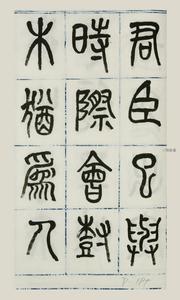 君臣已與
時際會尌
木猶爲人